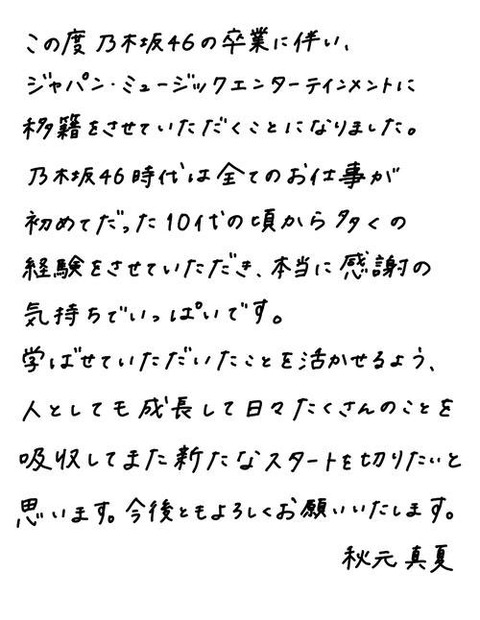 この度 乃木坂46の卒業に伴い、
ジャパン・ミュージックエンターテインメントに
移籍をさせていただくことになりました。
乃木坂46時代は全てのお仕事が
初めてだった10代の頃から多くの
経験をさせていただき、本当に感謝の
気持ちでいっぱいです。
学ばせていただいたことを活かせるよう、
人としても成長して日々たくさんのことを
吸収してまた新たなスタートを切りたいと
思います。今後ともよろしくお願いいたします。
秋元 真夏